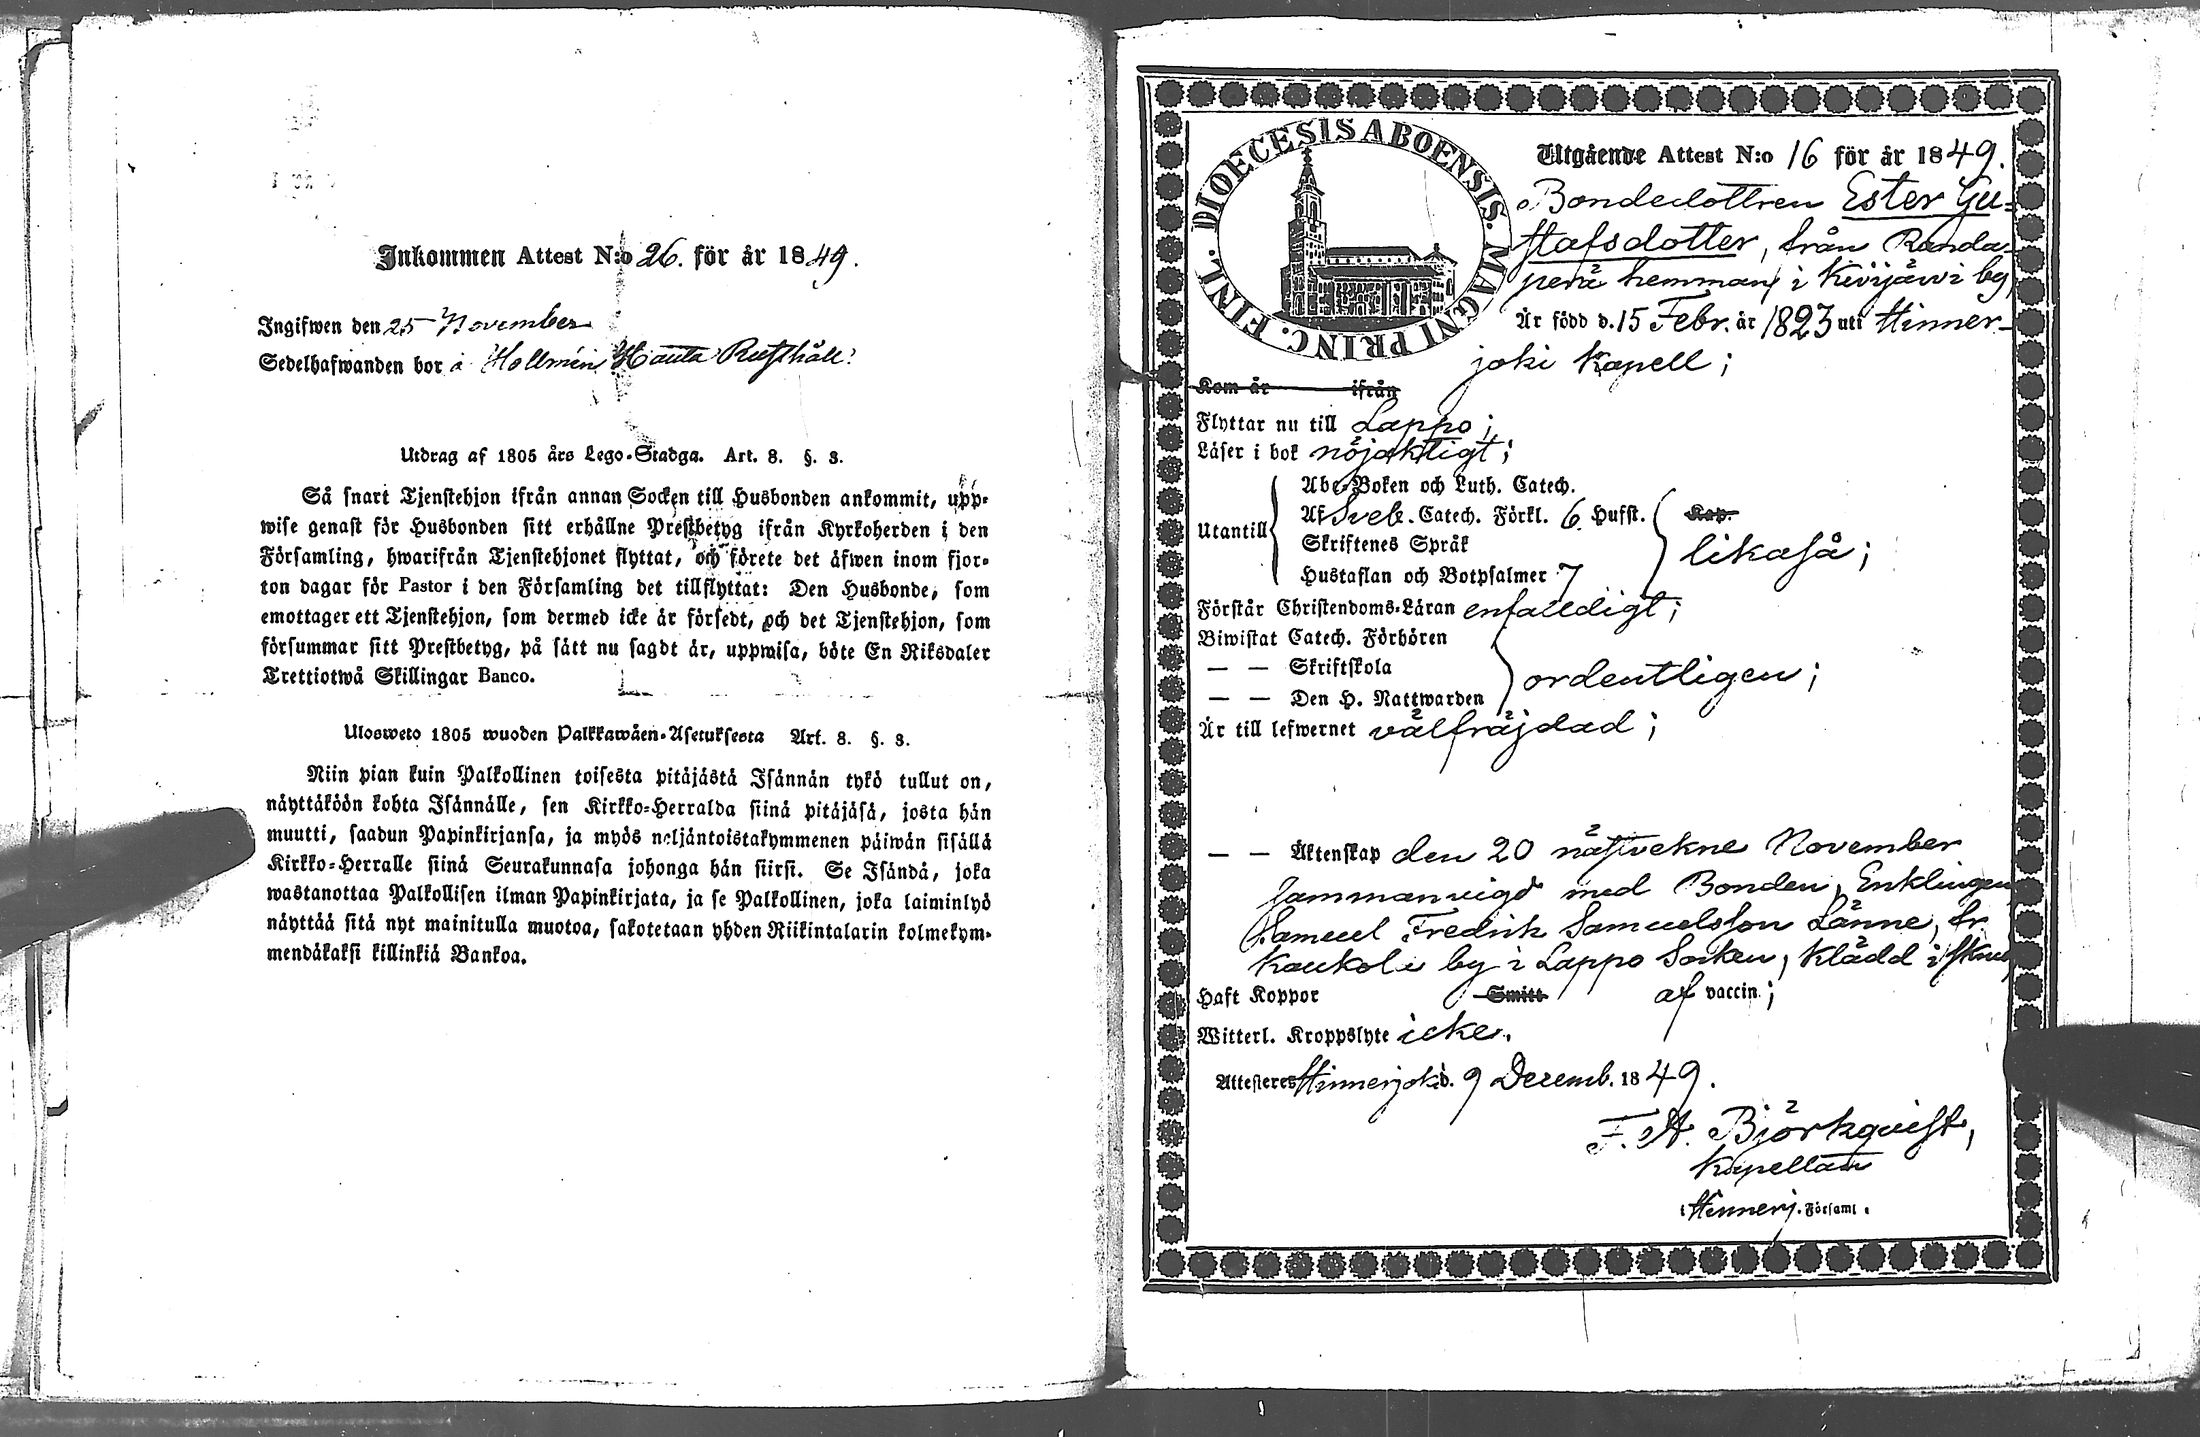 Inkommen Attest N:o 26. för år 1849.
Ingifwen den 25 November
Sedelhafwanden bor å Hollmén Hauta Rusthåll.
Utdrag af 1805 års Lego-Stadga. Art. 8. §. 3.
Så snart Tjenstehjon ifrån annan Socken till Husbonden ankommit, upp-
wise genast för Husbonden sitt erhållne Prestbetyg ifrån Kyrkoherden i den
Församling, hwarifrån Tjenstehjonet flyttat, och förete det äfwen inom fjor-
ton dagar för Pastor i den Församling det tillflyttat: Den Husbonde, som
emottager ett Tjenstehjon, som dermed icke är försedt, och det Tjenstehjon, som
försummar sitt Prestbetyg, på sätt nu sagdt är, uppwisa, böte En Riksdaler
Trettiotwå Skillingar Banco.
Ulosweto 1805 wuoden Palkkawäen-Asetuksesta Art. 8. §. 3.
Niin pian kuin Palkollinen toisesta pitäjästä Isännän tykö tullut on,
näyttäköön kohta Isännälle, sen Kirkko-Herralda siinä pitäjäsä, josta hän
muutti, saadun Papinkirjansa, ja myös neljäntoistakymmenen päiwän sisällä
Kirkko-Herralle siinä Seurakunnasa johonga hän siirsi. Se Isändä, joka
wastanottaa Palkollisen ilman Papinkirjata, ja se Palkollinen, joka laiminlyö
näyttää sitä nyt mainitulla muotoa, sakotetaan yhden Riikintalarin kolmekym-
mendäkaksi killinkiä Bankoa.
DIOECESIS ABOENSIS. MAGNI PRINC. FINL.
Utgående Attest N:o 16 för år 1849.
Bondedottren Ester Gu-
stafsdotter, från Randa-
perä hemman i Kivijärvi by,
Är född d. 15 Febr. år 1823 uti Hinner-
joki Kapell;
Kom år ifrån
Flyttar nu till Lappo;
Läser i bok nöjaktigt;
Abc-Boken och Luth. Catech.
Utantill Af Sveb. Catech. Förkl. 6 Hufst. Kap.
Skriftenes Språk likaså;
Hustaflan och Botpsalmer 7
Förstår Christendoms-Läran enfaldigt;
Biwistat Catech. Förhören
— — Skriftskola ordentligen;
— — Den H. Nattwarden
Är till lefwernet välfräjdad;
— — Äktenskap den 20 nästvekne November
sammanvigd med Bonden, Enklingen
Samuel Fredrik Samuelsson Länne, fr.
Kaukola by i Lappo Socken, klädd i skrud
Haft Koppor Smitt af vaccin;
Witterl. Kroppslyte icke.
Attesteres Hinnerjoki d. 9 Decemb. 1849.
F. A. Björkqvist,
Kapellan
i Hinnerj. Församl.